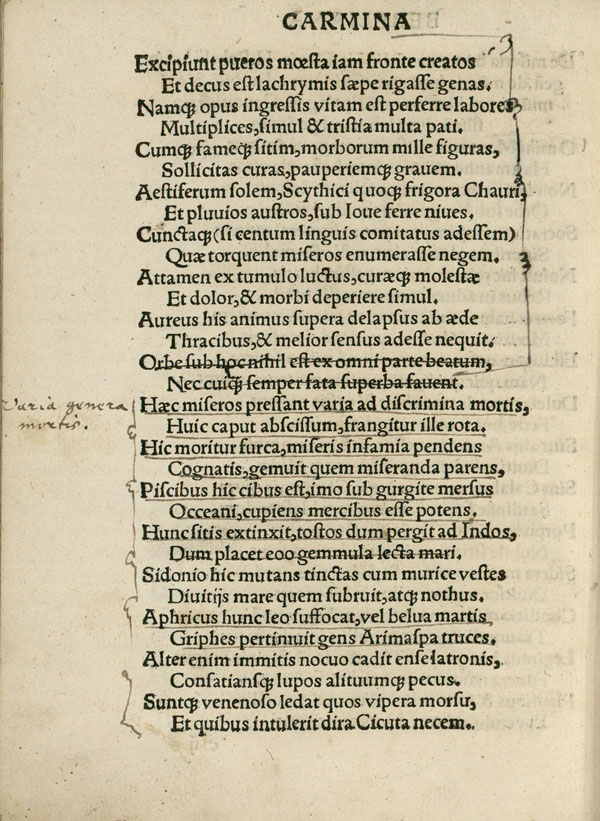 CARMINA
Excipiunt pueros mœsta iam fronte creatos
Et decus est lachrymis sæpe rigasse genas.
Namqꝫ opus ingressis vitam est perferre labores
Multiplices, simul & tristia multa pati.
Cumqꝫ fameqꝫ sitim, morborum mille figuras,
Sollicitas curas, pauperiemqꝫ grauem.
Aestiferum solem, Scythici quoqꝫ frigora Chauri,
Et pluuios austros, sub Ioue ferre niues.
Cunctaqꝫ (si centum linguis comitatus adessem)
Quæ torquent miseros enumerasse negem.
Attamen ex tumulo luctus, curæqꝫ molestæ
Et dolor, & morbi deperiere simul.
Aureus his animus supera delapsus ab æde
Thracibus, & melior sensus adesse nequit.
Orbe sub hoc nihil est ex omni parte beatum,
Nec cuiqꝫ semper fata superba fauent.
Varia genera
mortis.
Hæc miseros pressant varia ad discrimina mortis,
Huic caput abscissum, frangitur ille rota.
Hic moritur furca, miseris infamia pendens
Cognatis, gemuit quem miseranda parens,
Piscibus hic cibus est, imo sub gurgite mersus
Occeani, cupiens mercibus esse potens.
Hunc sitis extinxit, tostos dum pergit ad Indos,
Dum placet eoo gemmula lecta mari.
Sidonio hic mutans tinctas cum murice vestes
Diuitijs mare quem subruit, atqꝫ nothus.
Aphricus hunc leo suffocat, vel belua martis
Griphes pertimuit gens Arimaspa truces.
Alter enim immitis nocuo cadit ense latronis,
Consatiansqꝫ lupos alituumqꝫ pecus.
Suntqꝫ venenoso ledat quos vipera morsu,
Et quibus intulerit dira Cicuta necem.